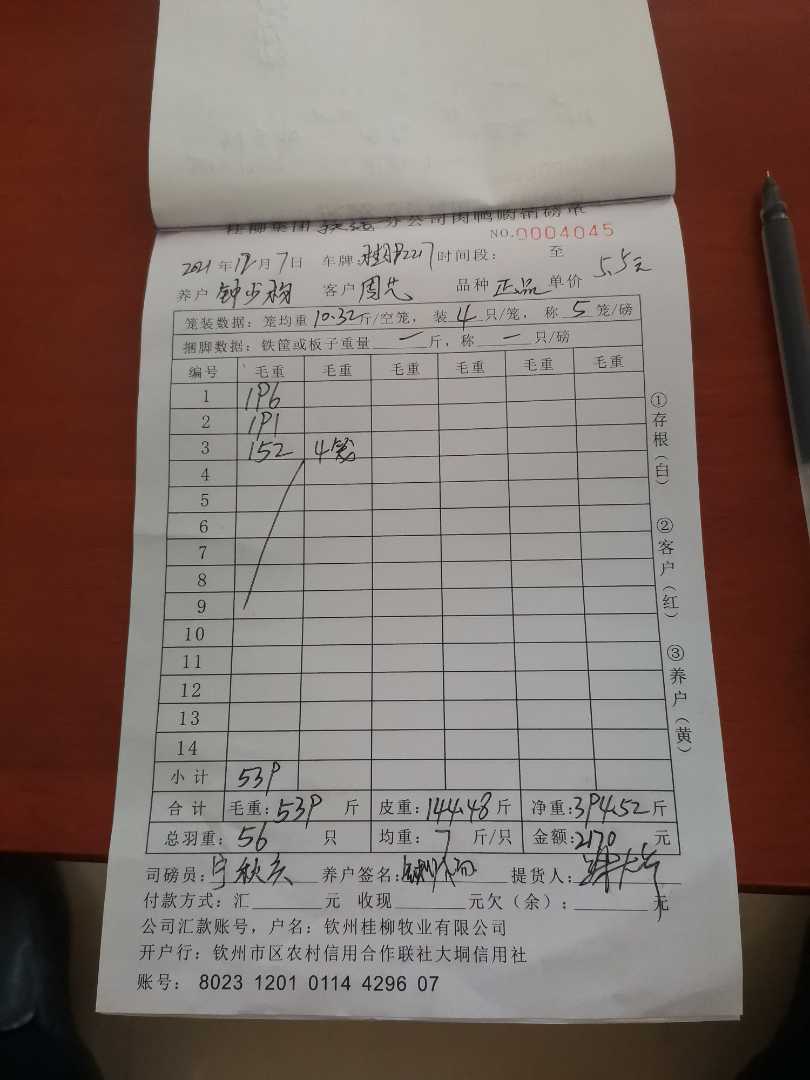 桂柳集团 钦州 分公司肉鸭屠销磅单
NO.0004045
2021年12月7日 车牌: 时间段: 至
养户 客户 周芃 品种 正品 单价 5.5元
笼装数据:笼均重10.32斤/空笼,装4只/笼,称5笼/磅
捆脚数据:铁筐或板子重量一斤,称一只/磅
编号 毛重 毛重 毛重 毛重 毛重 毛重
1 196
2 191
3 152 4笼
4
5
6
7
8
9
10
11
12
13
14
小计 539
合计 毛重:539斤 皮重:144.48斤 净重:394.52斤
总羽重:56只 均重:7斤/只 金额:2170元
司磅员:宁秋亥 养户签名: 提货人:
付款方式:汇 元 收现 元欠(余): 元
公司汇款账号,户名:钦州桂柳牧业有限公司
开户行:钦州市区农村信用合作联社大垌信用社
账号: 8023 1201 0114 4296 07
①存根(白)
②客户(红)
③养户(黄)